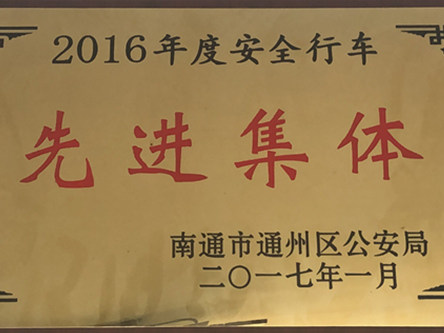 2016年度安全行车
先进集体
南通市通州区公安局
二〇一七年一月